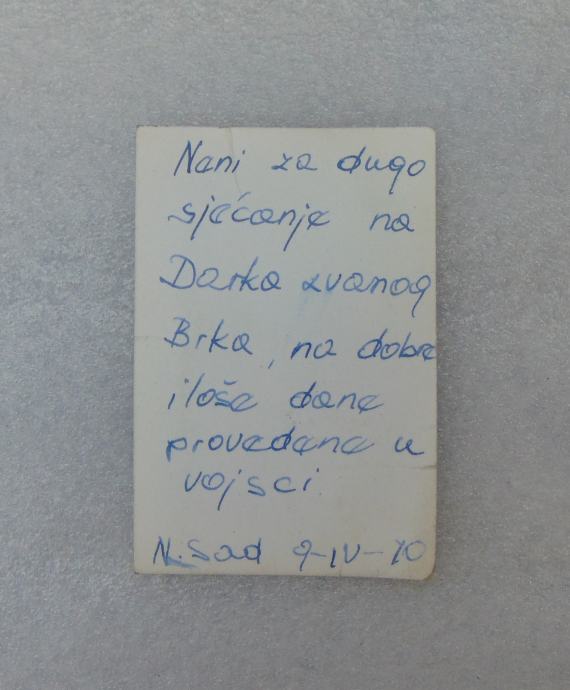 Nani za dugo
sjećanje na
Darka zvanog
Brka, na dobre
i loše dane
provedene u
vojsci
N. Sad 9-IV-70